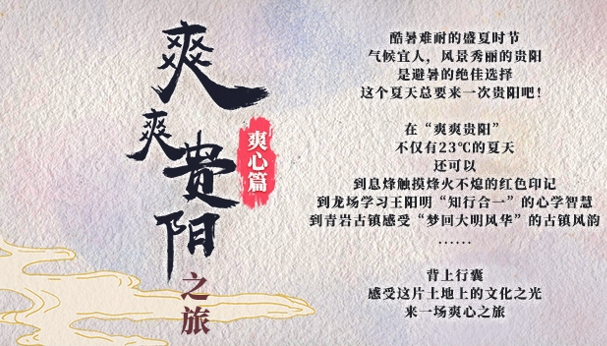 爽爽贵阳
之旅
爽心篇
酷暑难耐的盛夏时节
气候宜人，风景秀丽的贵阳
是避暑的绝佳选择
这个夏天总要来一次贵阳吧！
在“爽爽贵阳”
不仅有23℃的夏天
还可以
到息烽触摸烽火不熄的红色印记
到龙场学习王阳明“知行合一”的心学智慧
到青岩古镇感受“梦回大明风华”的古镇风韵
······
背上行囊
感受这片土地上的文化之光
来一场爽心之旅